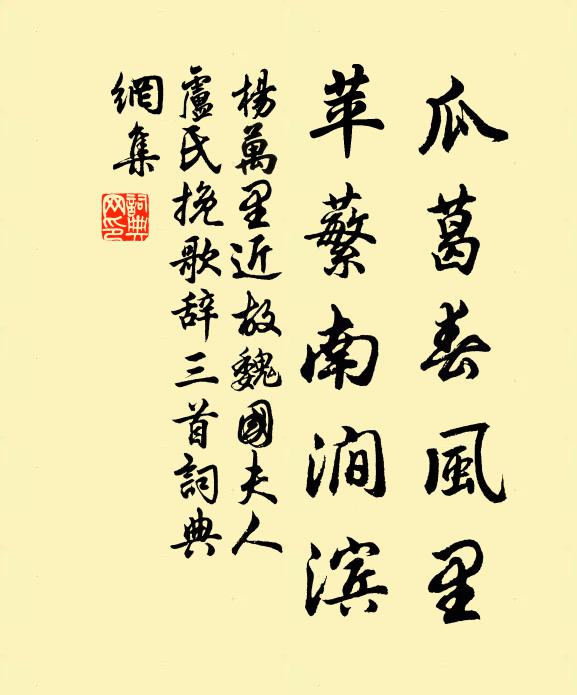 瓜葛春風里
苹蘩南涧滨
楊萬里近故魏國夫人
盧氏挽歌辞三首詞典
網集
詞典
网印